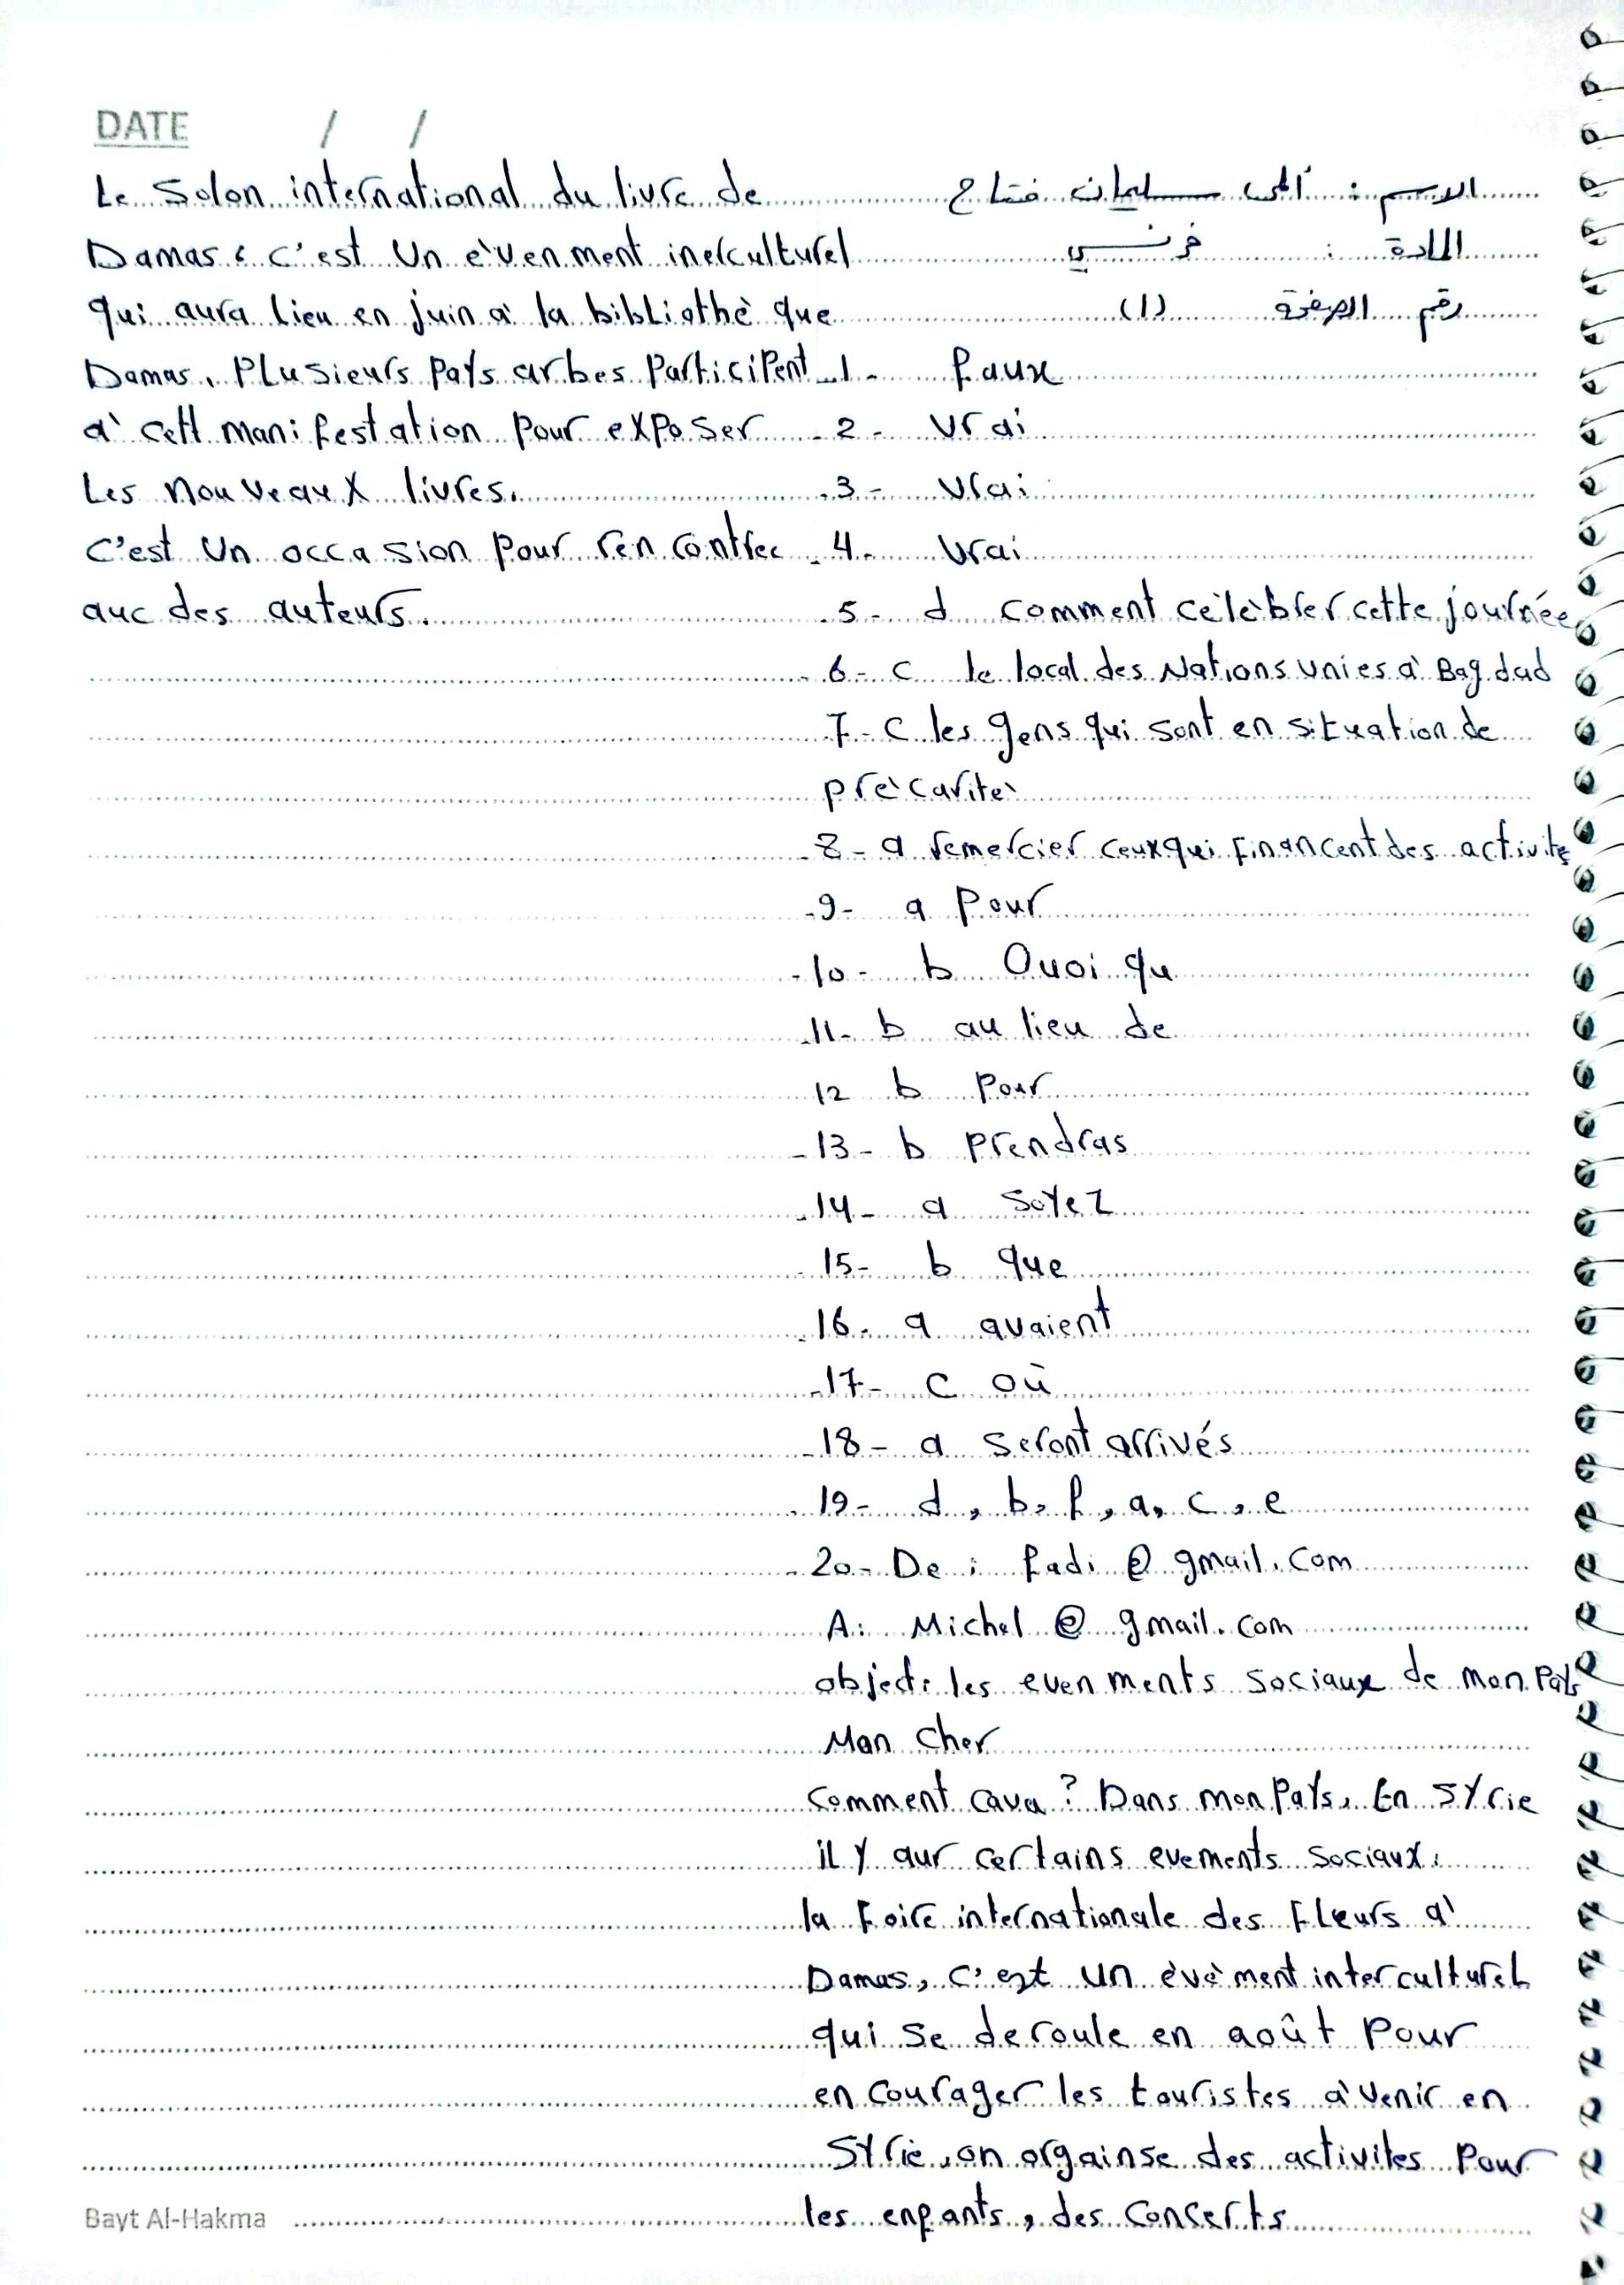 DATE / /
الاسم : ألمى سليمان فتاح
المادة : فرنسي
رقم الصفحة (1)
1- faux
2- Vrai
3- Vrai
4- Vrai
5- d comment célèbrer cette journée
6- c le local des Nations unies à Bagdad
7- C les gens qui sont en situation de
prècaritè
8- a remercier ceux qui financent des activités
9- a Pour
10- b Quoi qu
11- b au lieu de
12 b pour
13- b prendras
14- a soyez
15- b que
16- a avaient
17- c où
18- a seront arrivés
19- d, b, f, a, c, e
20- De : fadi @ gmail.com
A: Michel @ gmail.com
object: les evenments sociaux de mon Pays
Mon cher
comment cava ? Dans mon Pays, En Syrie
il y aur certains evements sociaux.
la Foire internationale des Fleurs à
Damas, c'est un évèment interculturel
qui se deroule en août Pour
encourager les touristes à venir en
Syrie, on orgainse des activites Pour
les enfants, des concerts
Le Solon international du livre de
Damas : c'est Un èvenment inerculturel
qui aura lieu en juin à la bibliothè que
Damas. Plusieurs Pays arbes Participent
à cett manifestation pour exposer
Les nouveaux livres.
C'est Un occasion pour rencontrer
auc des auteurs.
Bayt Al-Hakma